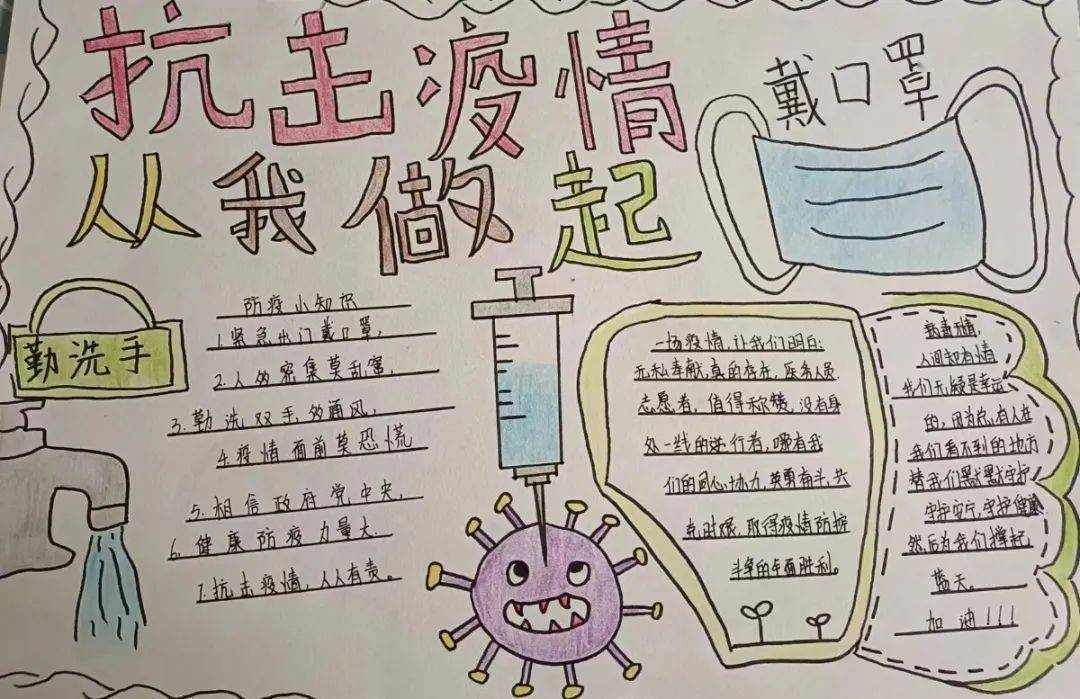 抗击疫情
从我做起
戴口罩
勤洗手
防疫小知识
1.紧急出门戴口罩,
2.人多密集莫乱窜,
3.勤洗双手,多通风,
4.疫情面前莫恐慌
5.相信政府党中央,
6.健康防疫力量大.
7.抗击疫情,人人有责。
一场疫情,让我们明白:
无私奉献,真的存在,医务人员
志愿者,值得称赞,没有身
处一线的逆行者,哪有我
们的同心协力,英勇奋斗,共
克时艰,取得疫情防控
斗争的全面胜利。
病毒无情,
人间却有情
我们无疑是幸运
的,因为总有人在
我们看不到的地方
替我们默默守护
守护安宁,守护健康
然后为我们撑起
蓝天。
加油!!!